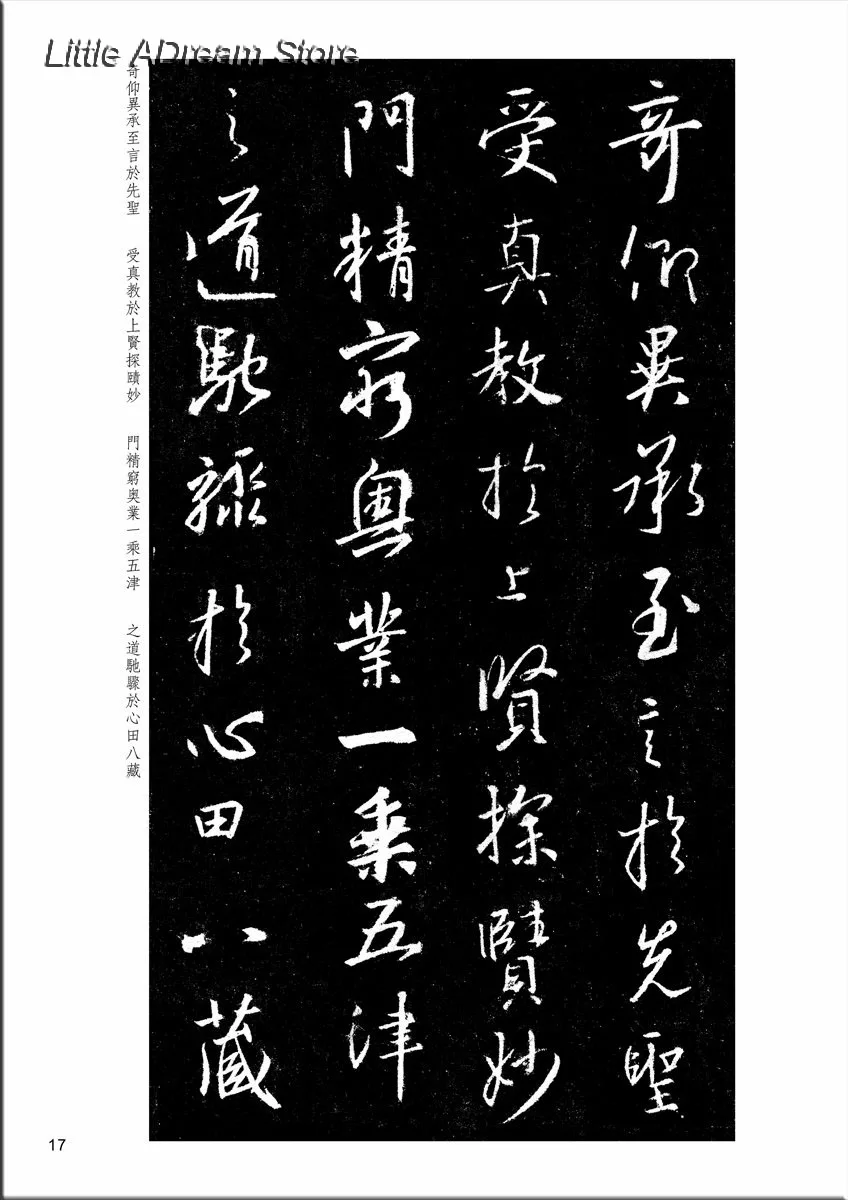 Little ADream Store
奇仰異承至言於先聖
受真教於上賢探賾妙
門精窮奥業一乘五津
之道馳驟於心田八藏
奇仰異承至言於先聖　受真教於上賢探賾妙　門精窮奥業一乘五津　之道馳驟於心田八藏
17